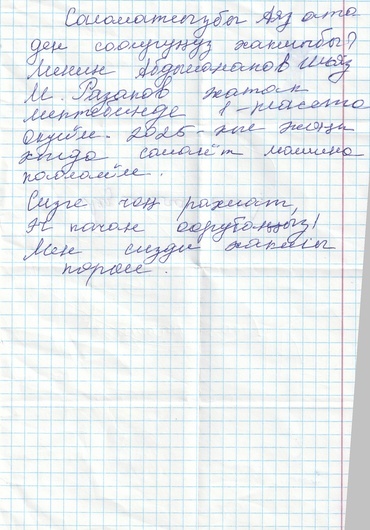 Саламатсызбы Аяз ата
ден соолугунуз жакшыбы?
Менин Абдыманапов
М. Раззаков жатак
мектебинде 1-класста
окуйм. 2025-жыл жаңы
жылда самолёт машина
каалайм.
Сизге чоң рахмат,
эч качан оорубаңыз!
Мен сизди жакшы
көрөм.